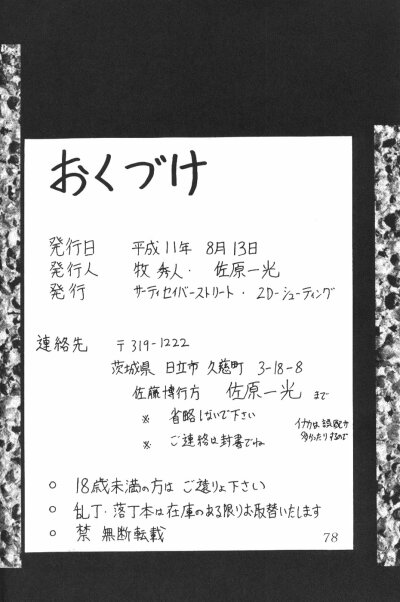 おくづけ
発行日 平成11年 8月13日
発行人 牧 秀人・佐原一光
発行 サーティセイバーストリート・2D-シューティング
連絡先 〒319-1222
茨城県 日立市 久慈町 3-18-8
佐藤博行方 佐原一光 まで
※ 省略しないで下さい
※ ご連絡は封書でね
イナカは誤配が
多かったりするので
○ 18歳未満の方は ご遠りょ下さい
○ 乱丁・落丁本は在庫のある限りお取替いたします
○ 禁 無断転載
78